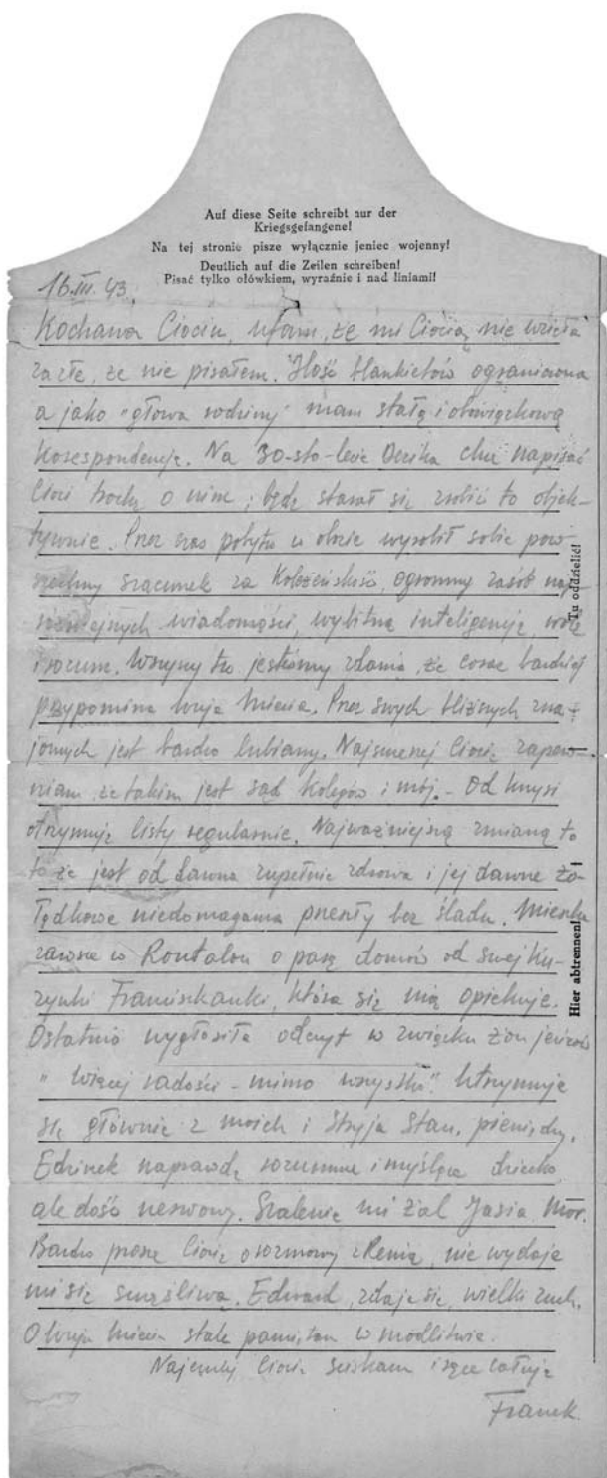 Auf diese Seite schreibt nur der
Kriegsgefangene!
Na tej stronie pisze wyłącznie jeniec wojenny!
Deutlich auf die Zeilen schreiben!
Pisać tylko ołówkiem, wyraźnie i nad liniami!
16.III.43.
Kochana Ciociu, ufam, że mi Ciocia nie wzięła
za złe, że nie pisałem. Ilość blankietów ograniczona
a jako "głowa rodziny" mam stałą i obowiązkową
korespondencję. Na 30-sto-lecie chcę napisać
Cioci trochę o nim; będę starał się zrobić to objek-
tywnie. Przez czas pobytu w obozie wyrobił sobie pow-
szechny szacunek za koleżeńskość, ogromny zasób naj-
rozmaitszych wiadomości, wybitną inteligencję, wolę
i rozum. Wszyscy tu jesteśmy zdania, że coraz bardziej
przypomina wuja Miecia. Przez swych bliższych zna-
jomych jest bardzo lubiany. Najszczerzej Ciocię zapew-
niam, że takim jest sąd kolegów i mój. - Od
otrzymuję listy regularnie. Najważniejszą zmianą to
to że jest od dawna zupełnie zdrowa i jej dawne żo-
łądkowe niedomagania przeszły bez śladu. Mieszka
zawsze w o parę domów od swej ku-
zynki Franciszkanki, która się nią opiekuje.
Ostatnio wygłosiła odczyt w związku żon jeńców
"Więcej radości - mimo wszystko". Utrzymuje
się głównie z moich i Stryja Stan. pieniędzy.
Edzinek naprawdę rozumne i myślące dziecko
ale dość nerwowy. Szalenie mi żal Jasia Mor.
Bardzo proszę Ciocię o rozmowy z Renią, nie wydaje
mi się szczęśliwa. Edward, zdaje się, wielki zuch.
O wuju Mieciu stale pamiętam w modlitwie.
Najczulej Ciocię ściskam i ręce całuję
Franek
Tu oddzielić!
Hier abtrennen!